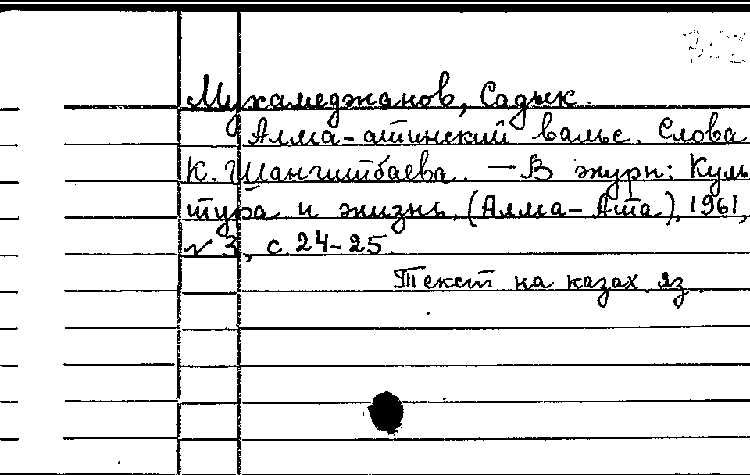 Мухамеджанов, Садык.
Алма-атинский вальс. Слова
К. Шангитбаева. — В журн: Куль
тура и жизнь (Алма-Ата), 1961,
№ 3, с. 24-25.
Текст на казах. яз.